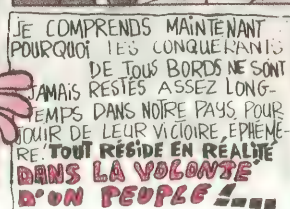 JE COMPRENDS MAINTENANT
POURQUOI LES CONQUÉRANTS
DE TOUS BORDS NE SONT
JAMAIS RESTÉS ASSEZ LONG-
TEMPS DANS NOTRE PAYS, POUR
JOUIR DE LEUR VICTOIRE, EPHÉMÈ-
RE. TOUT RÉSIDE EN REALITÉ
DANS LA VOLONTÉ
D'UN PEUPLE !...